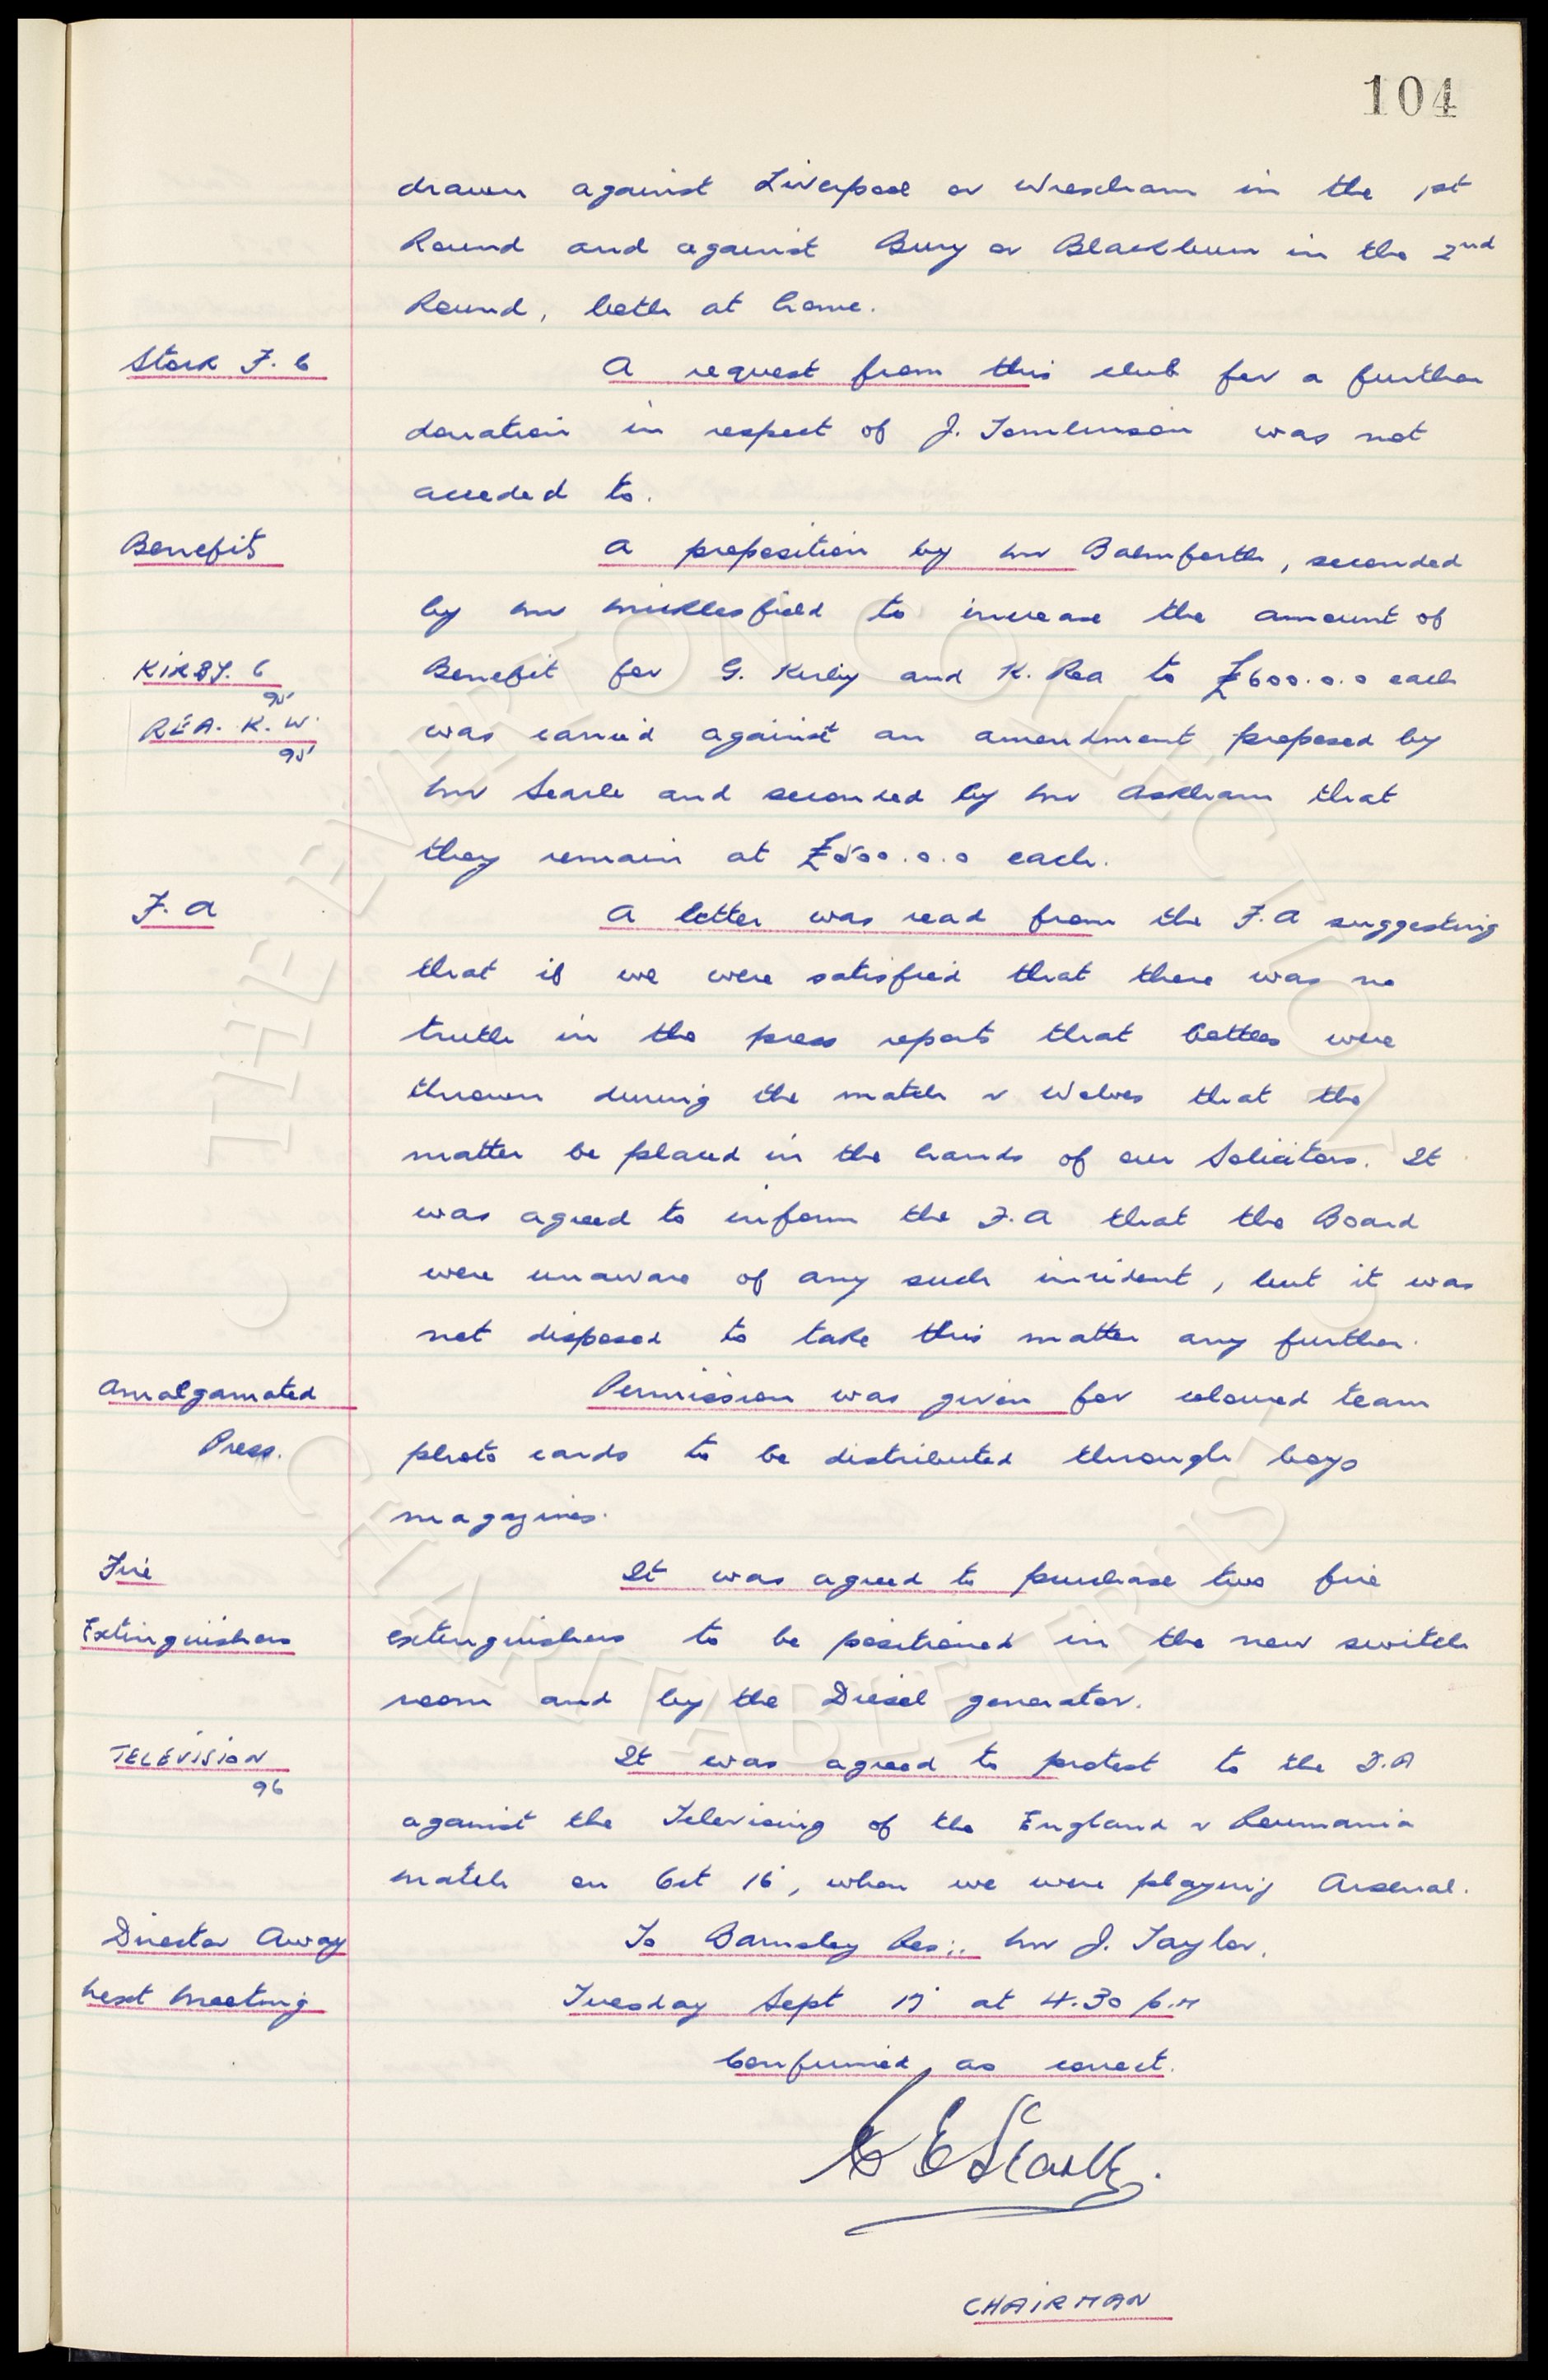 104
drawn against Liverpool or Wrexham in the 1st
Round and against Bury or Blackburn in the 2nd
Round, both at home.
Stork F. C
A request from this club for a further
donation in respect of J. Tomlinson was not
acceded to.
Benefits
A proposition by Mr Balmforth, seconded
by Mr Micklesfield to increase the amount of
KIRBY. G
95
Benefit for G. Kirby and K. Rea to £600.0.0 each
REA. K. W.
95
was carried against an amendment proposed by
Mr Searle and seconded by Mr Askham that
they remain at £500.0.0 each.
F. A
A letter was read from the F.A suggesting
that if we were satisfied that there was no
truth in the press reports that bottles were
thrown during the match v Wolves that the
matter be placed in the hands of our Solicitors. It
was agreed to inform the F.A that the Board
were unaware of any such incident, but it was
not disposed to take this matter any further.
Amalgamated
Permission was given for coloured team
Press.
photo cards to be distributed through boys
magazines.
Fire
It was agreed to purchase two fire
Extinguishers
extinguishers to be positioned in the new switch
room and by the Diesel generator.
TELEVISION
96
It was agreed to protest to the F.A
against the Televising of the England v Roumania
match on Oct 16, when we were playing Arsenal.
Director Away
To Barnsley Res:. Mr J. Taylor.
Next Meeting
Tuesday Sept 17 at 4.30 p.m
Confirmed as correct.
C E Searle.
CHAIRMAN
THE EVERTON COLLECTION
CHARITABLE TRUST